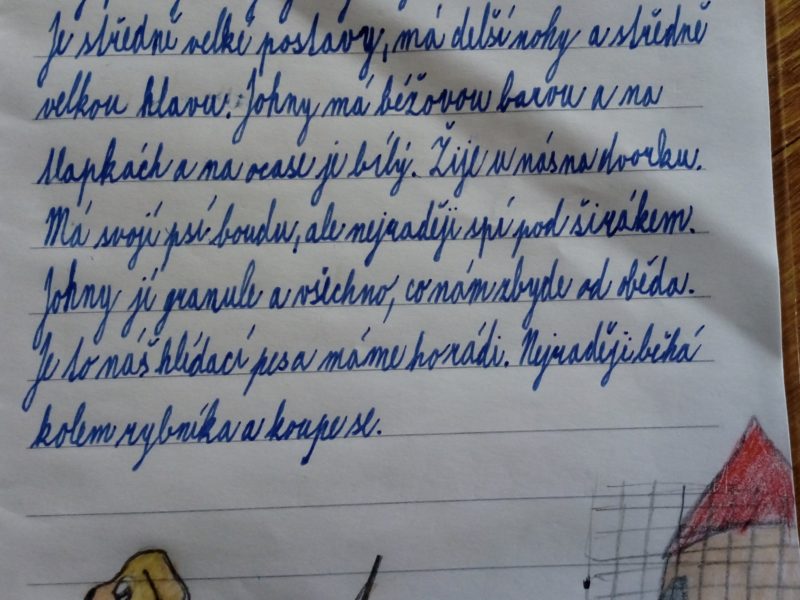 Je středně velké postavy, má delší nohy a středně
velkou hlavu. Johny má béžovou barvu a na
tlapkách a na ocase je bílý. Žije u nás na dvorku.
Má svojí psí boudu, ale nejraději spí pod širákem.
Johny jí granule a všechno, co nám zbyde od oběda.
Je to náš hlídací pes a máme ho rádi. Nejraději běhá
kolem rybníka a koupe se.